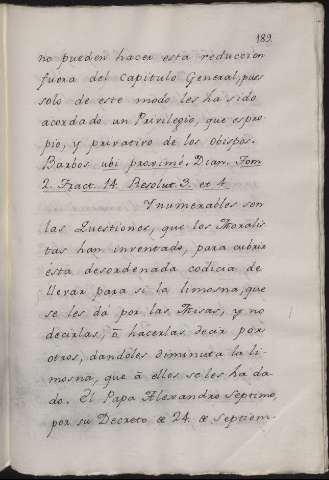 189.
no pueden hacer esta reduccion
fuera del Capitulo General, pues
solo de este modo les ha sido
acordado un Privilegio, que es pro-
pio, y privativo de los Obispos.
Barbos. ubi proximé. Dian. Tom.
2. Tract. 14. Resolut. 3. et 4.
Ynumerables son
las Questiones, que los Moralis
tas han inventado, para cubrir
ésta desordenada codicia de
llevar para si la limosna, que
se les dá por las Missas, y no
decirlas, ō hacerlas decir por
otros, dandoles diminuta la li-
mosna, que ā ellos se les ha da-
do. El Papa Alexandro Septimo,
por su Decreto de 24. de Septiem-